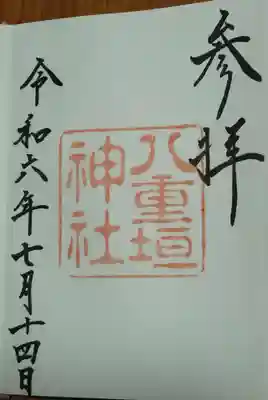 參拜
八重垣
神社
令和六年七月十四日